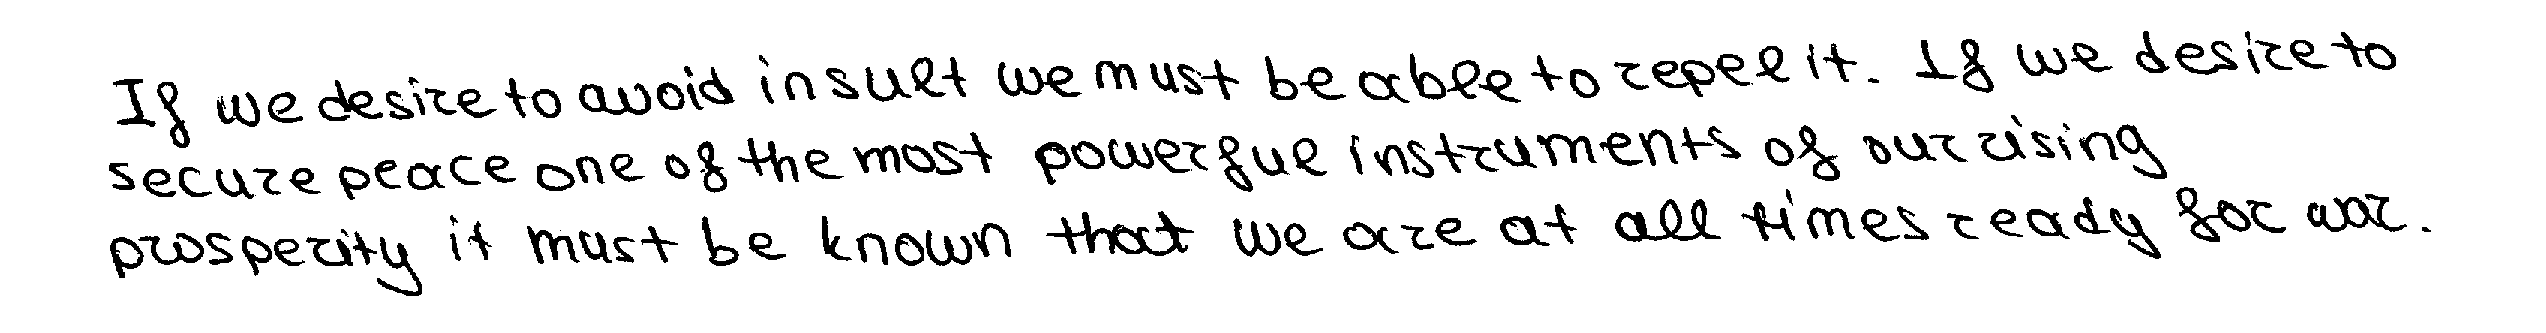 If we desire to avoid insult we must be able to repel it. If we desire to
secure peace one of the most powerful instruments of our rising
prosperity it must be known that we are at all times ready for war.